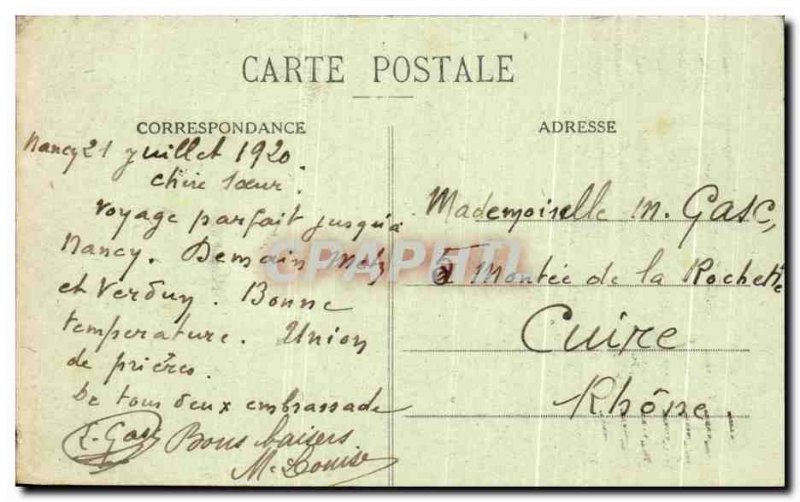 CARTE POSTALE
CORRESPONDANCE
Nancy 21 juillet 1920
chère soeur.
voyage parfait jusqu'à
Nancy. Demain Metz
et Verdun. Bonne
temperature. Union
de prières.
De tous deux embrassade
Gasc Bons baisers
M. Louise
ADRESSE
Mademoiselle M. Gasc,
5 Montée de la Rochette
Cuire
Rhône.
CPAPHIL